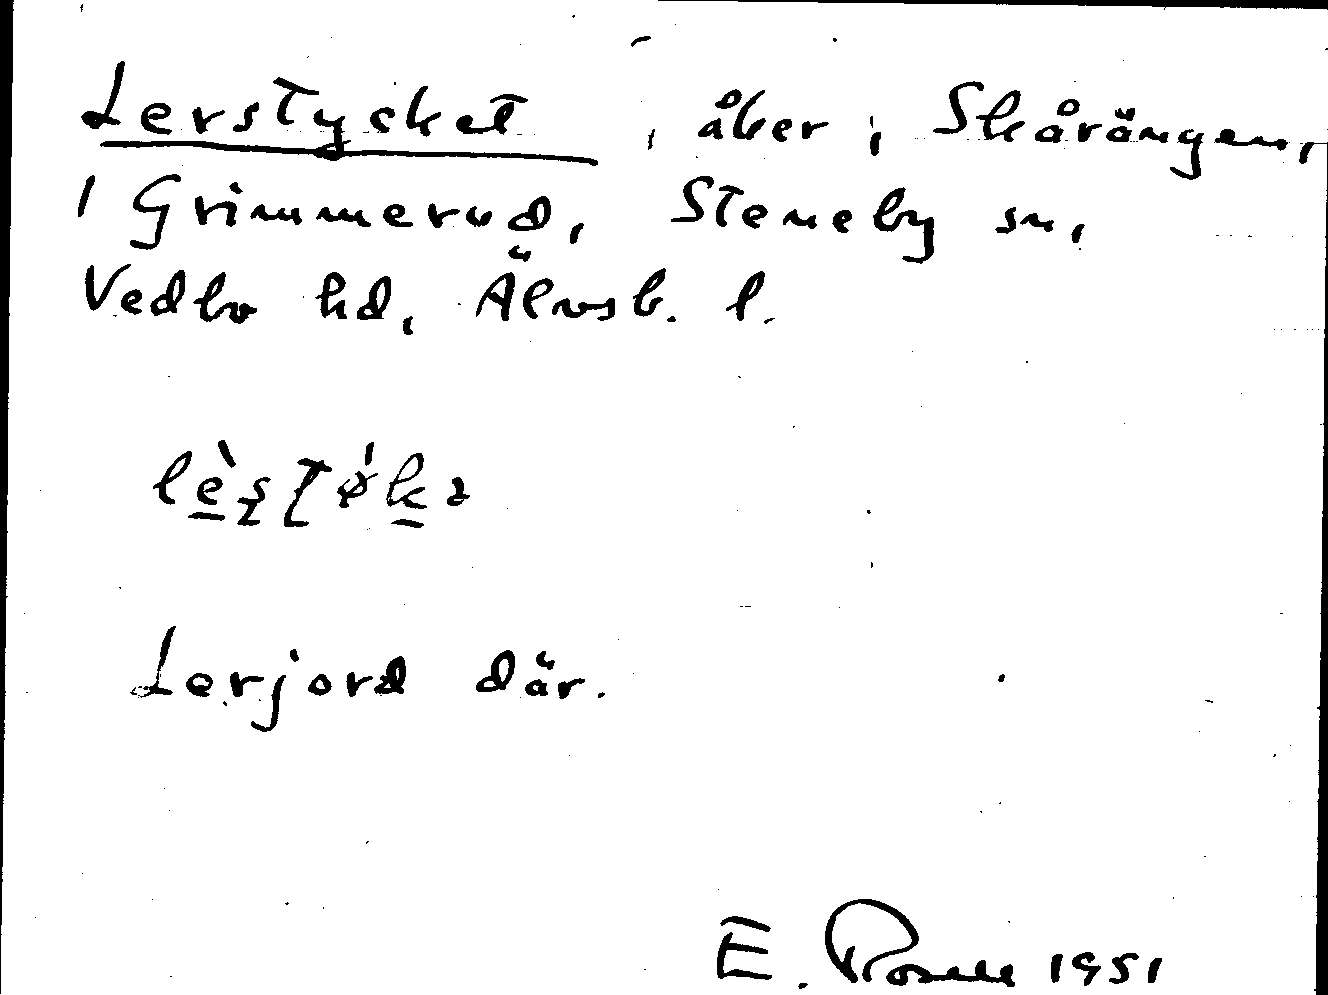 Lerstycket, åker i Skårängen,
1 Grimmerud, Steneby sn,
Vedbo hd, Älvsb. l.
Lerjord där.
E. Rosell 1951